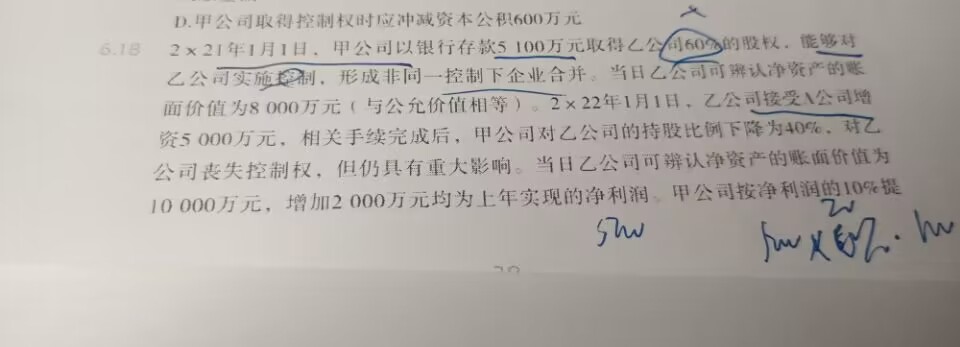 D.甲公司取得控制权时应冲减资本公积600万元
6.18 2×21年1月1日，甲公司以银行存款5 100万元取得乙公司60%的股权，能够对
乙公司实施控制，形成非同一控制下企业合并。当日乙公司可辨认净资产的账
面价值为8 000万元（与公允价值相等）。2×22年1月1日，乙公司接受A公司增
资5 000万元，相关手续完成后，甲公司对乙公司的持股比例下降为40%，对乙
公司丧失控制权，但仍具有重大影响。当日乙公司可辨认净资产的账面价值为
10 000万元，增加2 000万元均为上年实现的净利润。甲公司按净利润的10%提